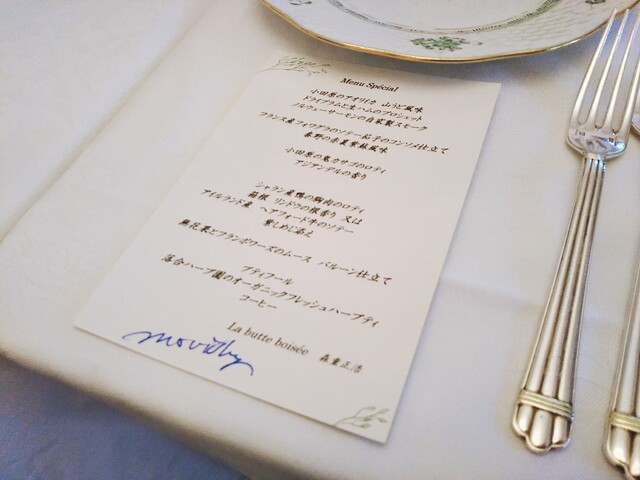 Menu Spécial
小田原のアオリイカ 山うど風味
ドライプラムと生ハムのブロシェット
ノルウェーサーモンの自家製スモーク
フランス産フォワグラのソテー 茄子のコンソメ仕立て
小田原の鬼カサゴのロティ
アジアンデルの香り
シャラン産鴨の胸肉のロティ
箱根 リンドウの根香り 又は
アイルランド産 ヘアフォード牛のソテー
無花果とフランボワーズのムース バルーン仕立て
プティフール
落合ハーブ園のオーガニックフレッシュハーブティ
コーヒー
La butte boisée 森重正浩